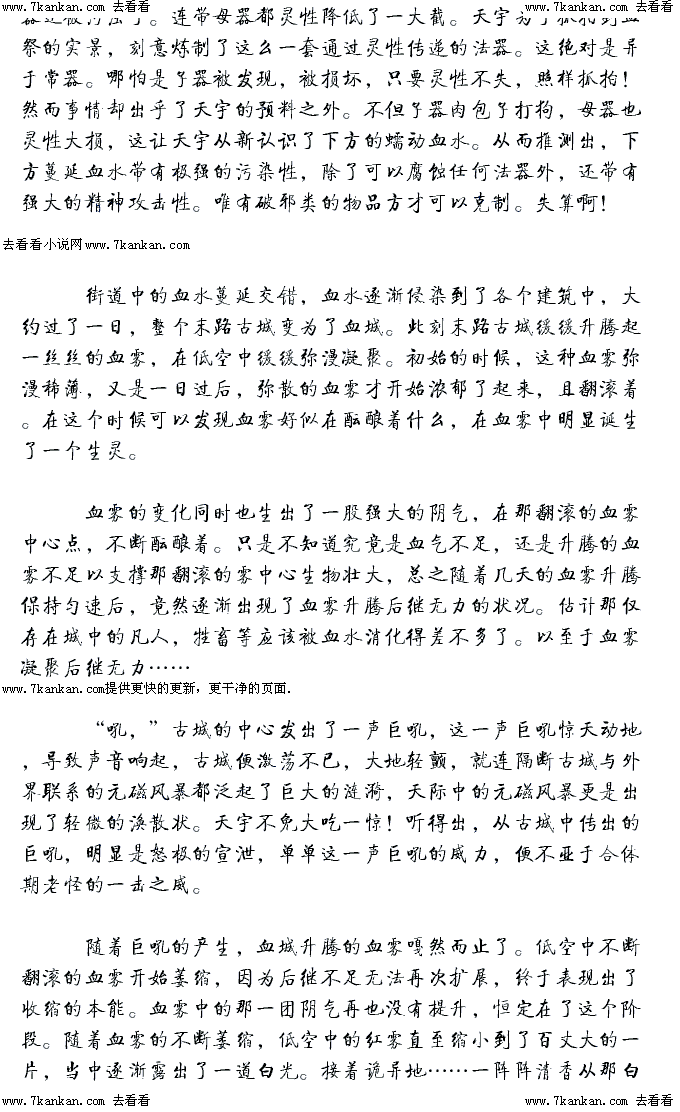 www.7kankan.com 去看看 去看看 www.7kankan.com 去看看
连带母器都灵性降低了一大截。天宇为了抓拍到血
祭的实景，刻意炼制了这么一套通过灵性传递的法器。这绝对是异
于常器。哪怕是子器被发现，被损坏，只要灵性不失，照样抓拍！
然而事情却出乎了天宇的预料之外。不但子器肉包子打狗，母器也
灵性大损，这让天宇从新认识了下方的蠕动血水。从而推测出，下
方蔓延血水带有极强的污染性，除了可以腐蚀任何法器外，还带有
强大的精神攻击性。唯有破邪类的物品方才可以克制。失算啊！
去看看小说网www.7kankan.com
街道中的血水蔓延交错，血水逐渐侵染到了各个建筑中，大
约过了一日，整个末路古城变为了血城。此刻末路古城缓缓升腾起
一丝丝的血雾，在低空中缓缓弥漫凝聚。初始的时候，这种血雾弥
漫稀薄，又是一日过后，弥散的血雾才开始浓郁了起来，且翻滚着
。在这个时候可以发现血雾好似在酝酿着什么，在血雾中明显诞生
了一个生灵。
血雾的变化同时也生出了一股强大的阴气，在那翻滚的血雾
中心点，不断酝酿着。只是不知道究竟是血气不足，还是升腾的血
雾不足以支撑那翻滚的雾中心生物壮大，总之随着几天的血雾升腾
保持匀速后，竟然逐渐出现了血雾升腾后继无力的状况。估计那仅
存在城中的凡人，牲畜等应该被血水消化得差不多了。以至于血雾
凝聚后继无力……
www.7kankan.com提供更快的更新，更干净的页面.
“吼，”古城的中心发出了一声巨吼，这一声巨吼惊天动地
，导致声音响起，古城便激荡不已，大地轻颤，就连隔断古城与外
界联系的元磁风暴都泛起了巨大的涟漪，天际中的元磁风暴更是出
现了轻微的涣散状。天宇不免大吃一惊！听得出，从古城中传出的
巨吼，明显是怒极的宣泄，单单这一声巨吼的威力，便不亚于合体
期老怪的一击之威。
随着巨吼的产生，血城升腾的血雾嘎然而止了。低空中不断
翻滚的血雾开始萎缩，因为后继不足无法再次扩展，终于表现出了
收缩的本能。血雾中的那一团阴气再也没有提升，恒定在了这个阶
段。随着血雾的不断萎缩，低空中的红雾直至缩小到了百丈大的一
片，当中逐渐露出了一道白光。接着诡异地……一阵阵清香从那白
www.7kankan.com 去看看 www.7kankan.com 去看看